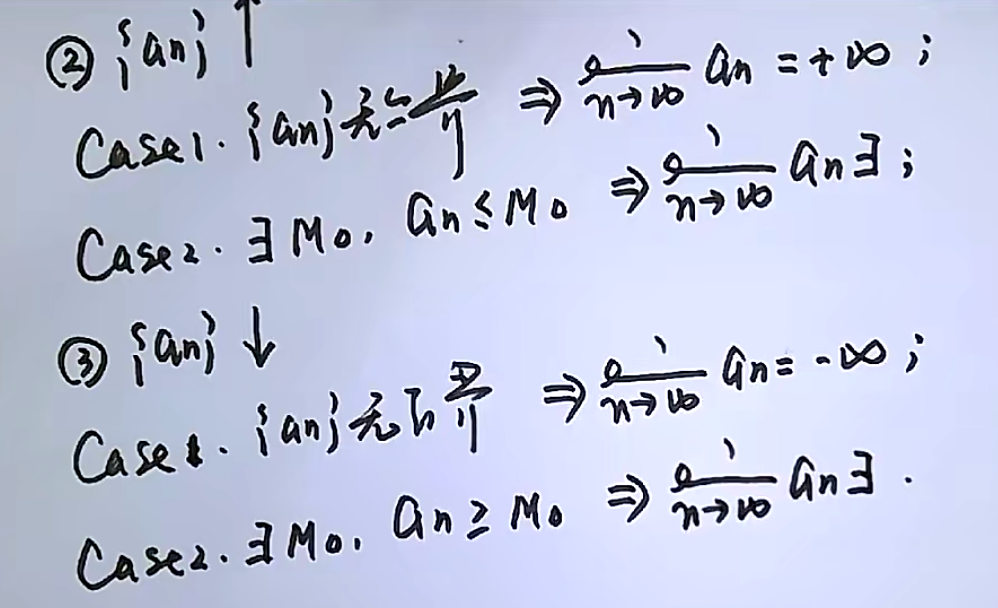 ② {an}↑
Case1. {an}无上界 ⇒ lim n→∞ an = +∞;
Case2. ∃M₀, an ≤ M₀ ⇒ lim n→∞ an∃;
③ {an}↓
Case1. {an}无下界 ⇒ lim n→∞ an = -∞;
Case2. ∃M₀, an ≥ M₀ ⇒ lim n→∞ an∃.